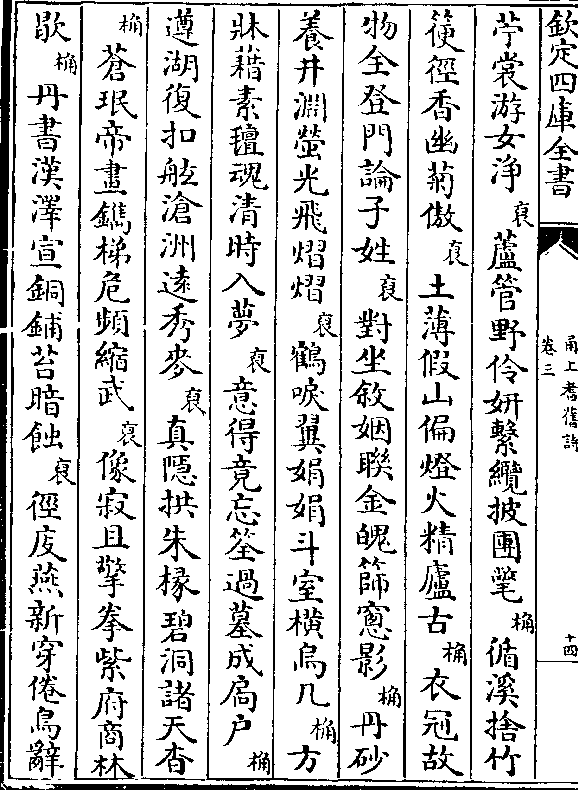 欽定四庫全書
甬上耆舊詩
卷三
十四
苧裳游女浄袞蘆管野伶妍繫纜披團氅桷循溪捨竹
筧徑香幽菊傲袞土薄假山偏燈火精廬古桷衣冠故
物全登門論子姓袞對坐敘姻聯金魄篩窻影桷丹砂
養井淵螢光飛熠熠袞鶴唳翼娟娟斗室横烏几桷方
牀藉素氊魂清時入夢袞意得竟忘筌過墓成扃户桷
遵湖復扣舷滄洲遠秀麥袞真隠拱朱椽碧洞諸天杳
桷蒼珉帝畫鐫梯危頻縮武袞像寂且擎拳紫府商林
歇桷丹書漢澤宣銅鋪苔暗蝕袞徑庋燕新穿倦鳥辭